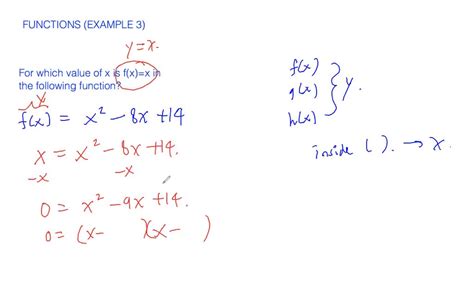 FUNCTIONS (EXAMPLE 3)
y = x.
For which value of x is f(x)=x in
the following function?
f(x) = x² - 8x + 14
x = x² - 8x + 14.
-x -x
0 = x² - 9x + 14.
0 = (x- )(x- )
f(x)
g(x) } y.
h(x)
inside ( ). → x.